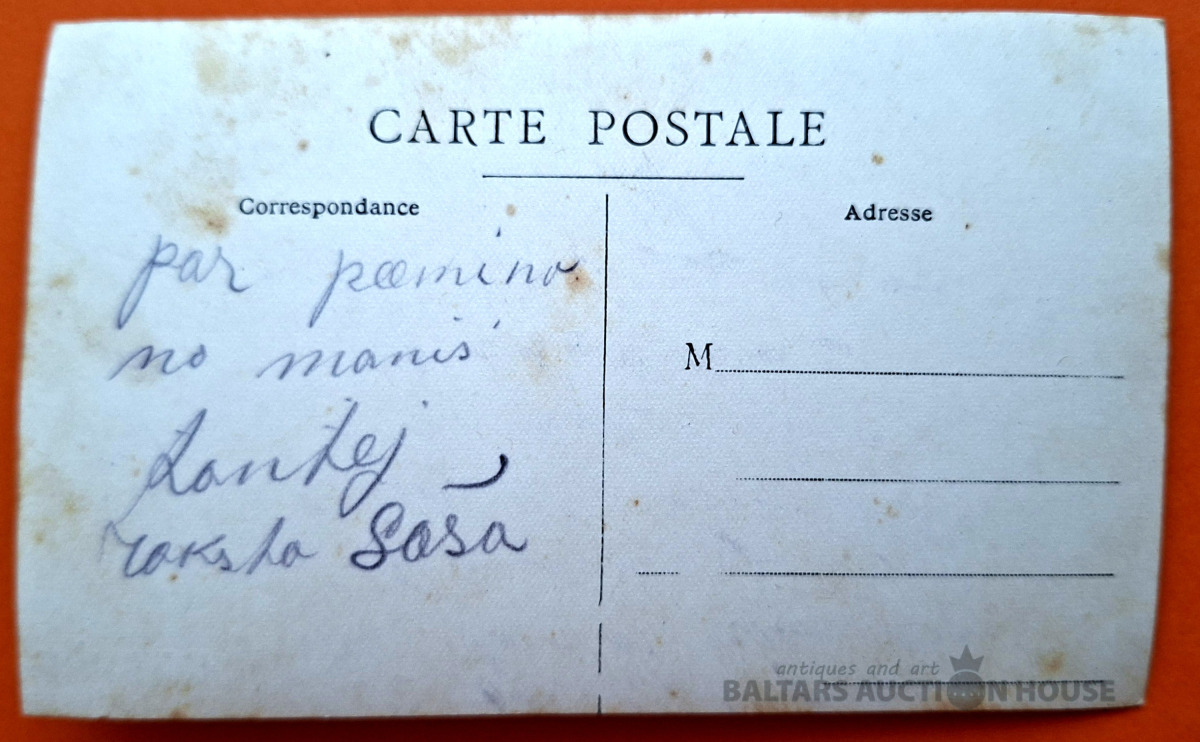 CARTE POSTALE
Correspondance
Adresse
par pæmiņo
no manis
Tantej
raksta Saša
M
antiques and art
BALTARS AUCTION HOUSE